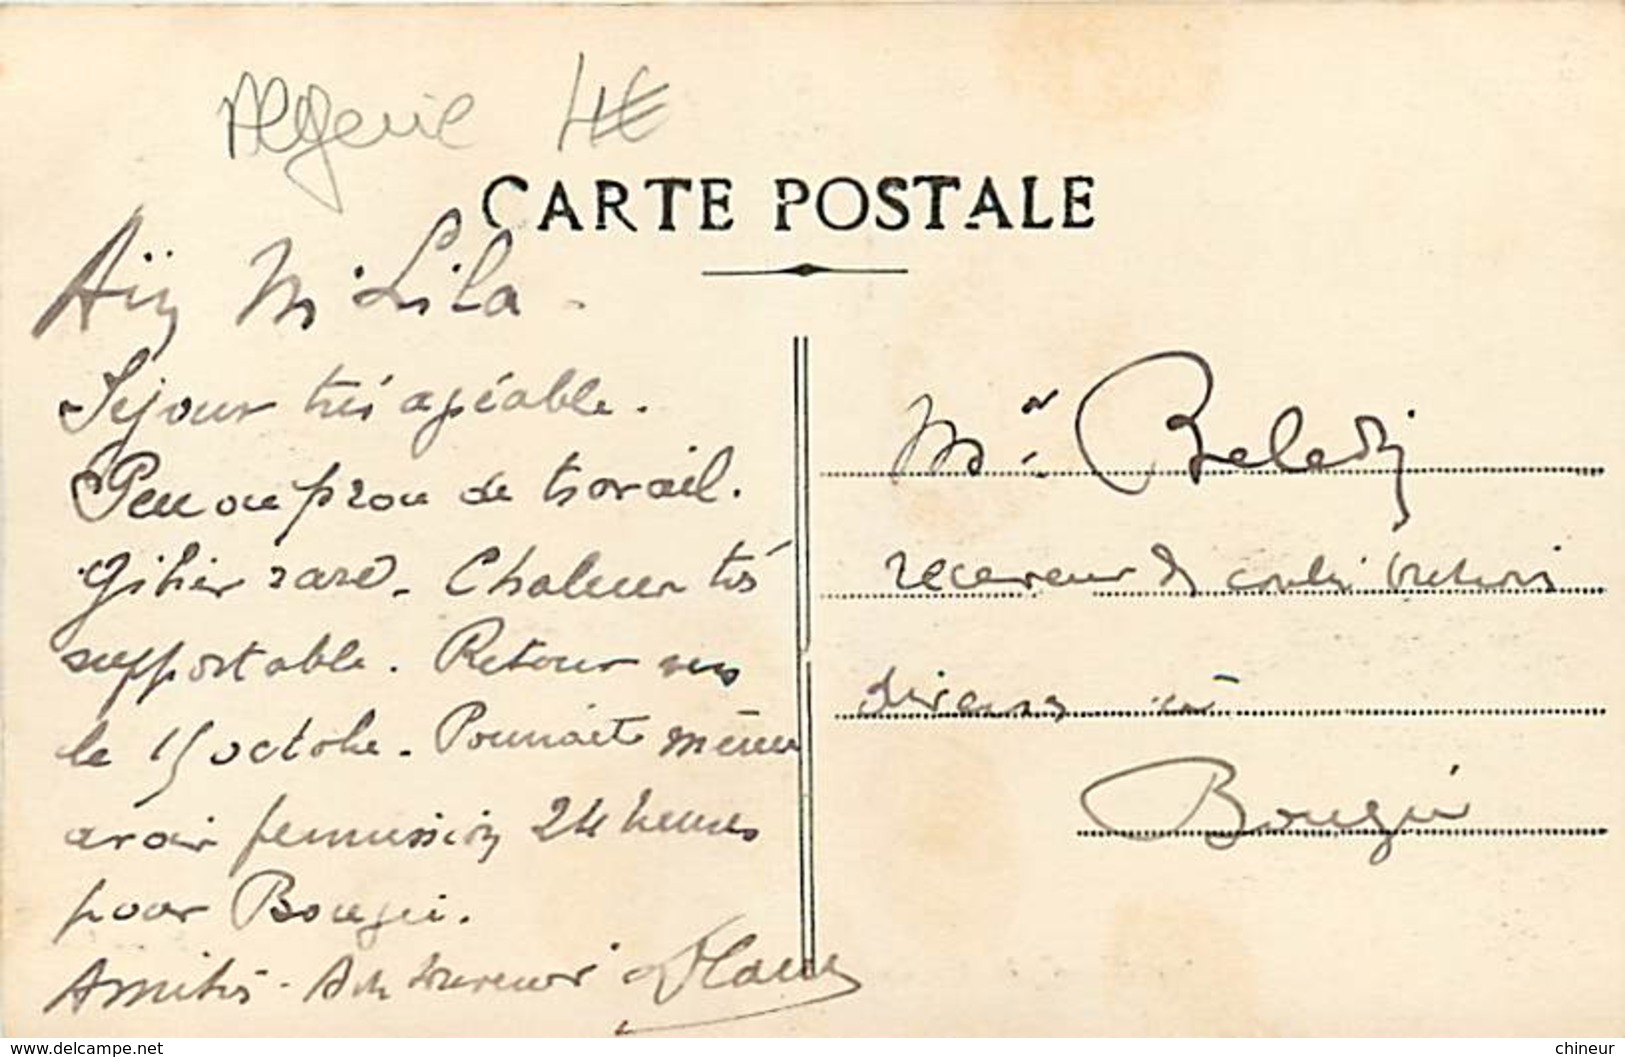 Algerie 4€
CARTE POSTALE
Aïn M'Lila.
Séjour très agréable.
Peu ou prou de travail.
Gibier rare. Chaleur très
supportable. Retour vers
le 15 octobre. Pourrait même
avoir permission 24 heures
pour Bougie.
Amitiés.
Mr Beledji
receveur des contributions
diverses à
Bougie
www.delcampe.net
chineur